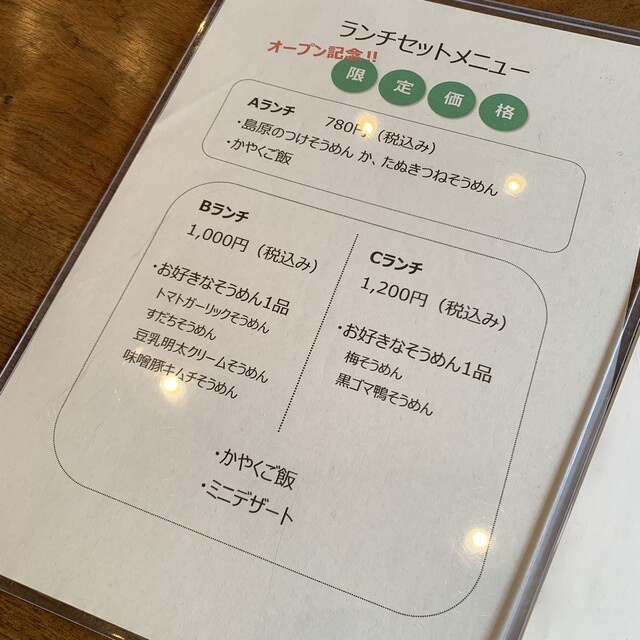 ランチセットメニュー
オープン記念!!
限定価格
Aランチ 780円（税込み）
・島原のつけそうめん か、たぬきつねそうめん
・かやくご飯
Bランチ
1,000円（税込み）
・お好きなそうめん1品
トマトガーリックそうめん
すだちそうめん
豆乳明太クリームそうめん
味噌豚キムチそうめん
Cランチ
1,200円（税込み）
・お好きなそうめん1品
梅そうめん
黒ゴマ鴨そうめん
・かやくご飯
・ミニデザート